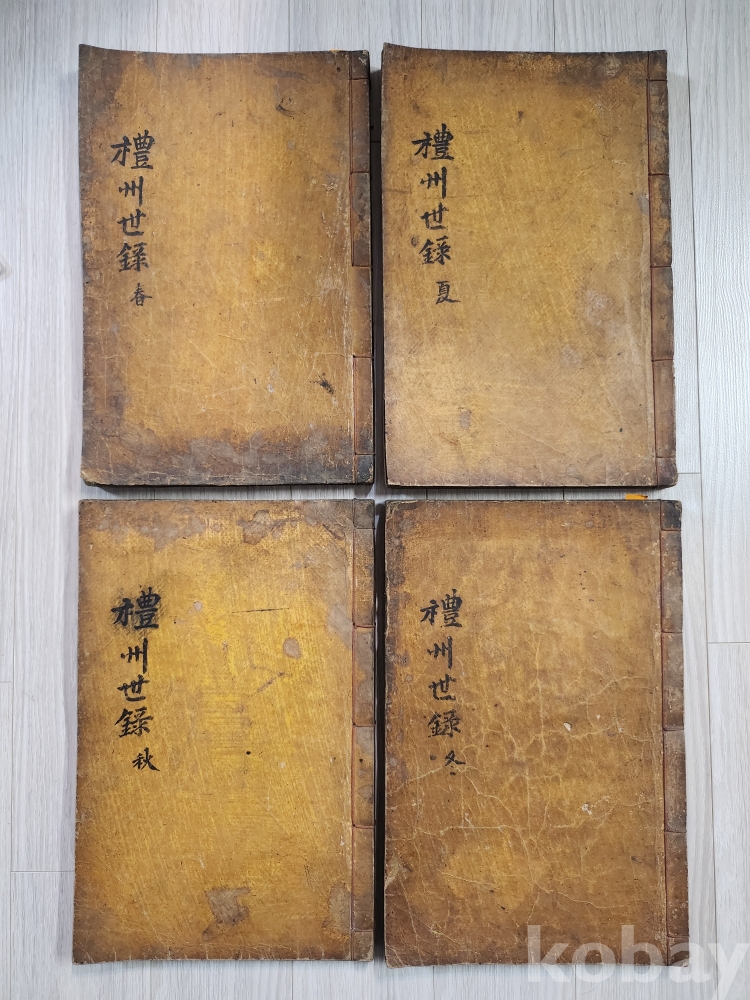 禮州世録
春
禮州世録
夏
禮州世録
秋
禮州世録
冬
kobay